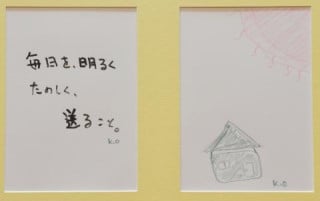 毎日を、明るく
たのしく、
送ること。
K.O
K.O